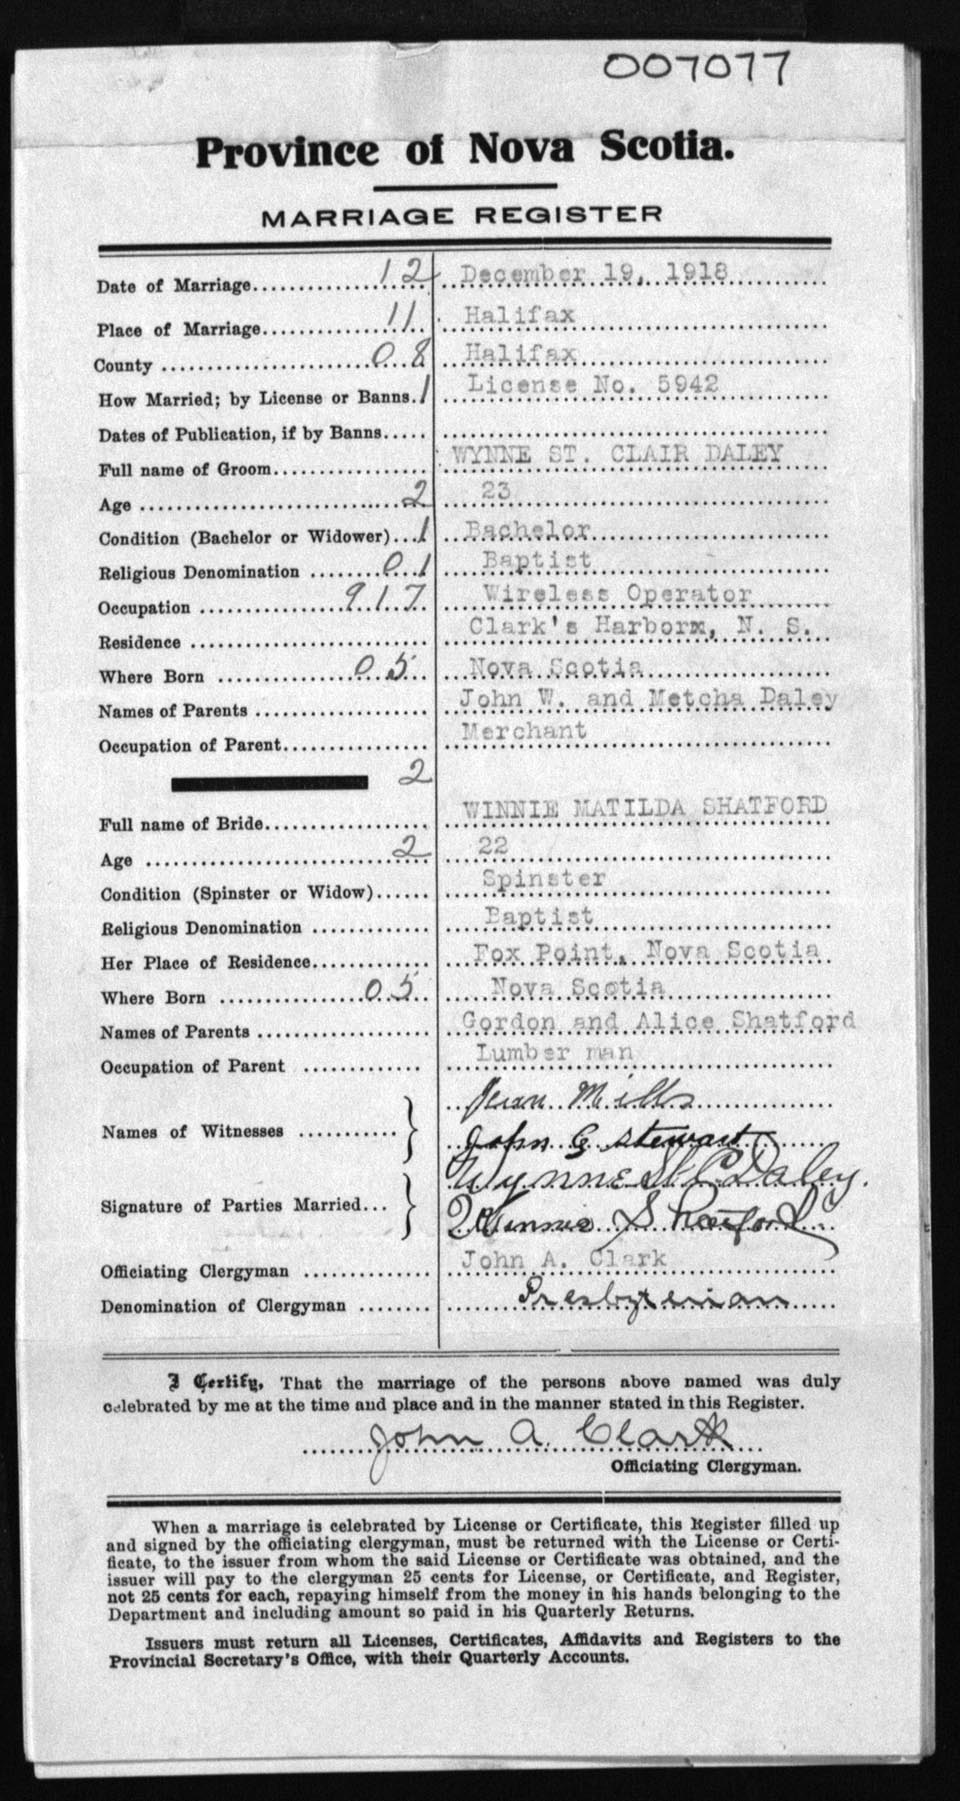 007077
Province of Nova Scotia.
MARRIAGE REGISTER
Date of Marriage 12 December 19, 1918
Place of Marriage 11 Halifax
County 08 Halifax
How Married; by License or Banns. 1 License No. 5942
Dates of Publication, if by Banns
Full name of Groom WYNNE ST. CLAIR DALEY
Age 2 23
Condition (Bachelor or Widower) 1 Bachelor
Religious Denomination 01 Baptist
Occupation 917 Wireless Operator
Residence Clark's Harborx, N. S.
Where Born 05 Nova Scotia
Names of Parents John W. and Metcha Daley
Occupation of Parent Merchant
2
Full name of Bride WINNIE MATILDA SHATFORD
Age 2 22
Condition (Spinster or Widow) Spinster
Religious Denomination Baptist
Her Place of Residence Fox Point, Nova Scotia
Where Born 05 Nova Scotia
Names of Parents Gordon and Alice Shatford
Occupation of Parent Lumber man
Jean Mills
Names of Witnesses
John G Stewart
Wynne St C Daley.
Signature of Parties Married
Winnie Shatford
Officiating Clergyman John A. Clark
Denomination of Clergyman Presbyterian
I Certify, That the marriage of the persons above named was duly
celebrated by me at the time and place and in the manner stated in this Register.
John A. Clark
Officiating Clergyman.
When a marriage is celebrated by License or Certificate, this Register filled up
and signed by the officiating clergyman, must be returned with the License or Certi-
ficate, to the issuer from whom the said License or Certificate was obtained, and the
issuer will pay to the clergyman 25 cents for License, or Certificate, and Register,
not 25 cents for each, repaying himself from the money in his hands belonging to the
Department and including amount so paid in his Quarterly Returns.
Issuers must return all Licenses, Certificates, Affidavits and Registers to the
Provincial Secretary's Office, with their Quarterly Accounts.